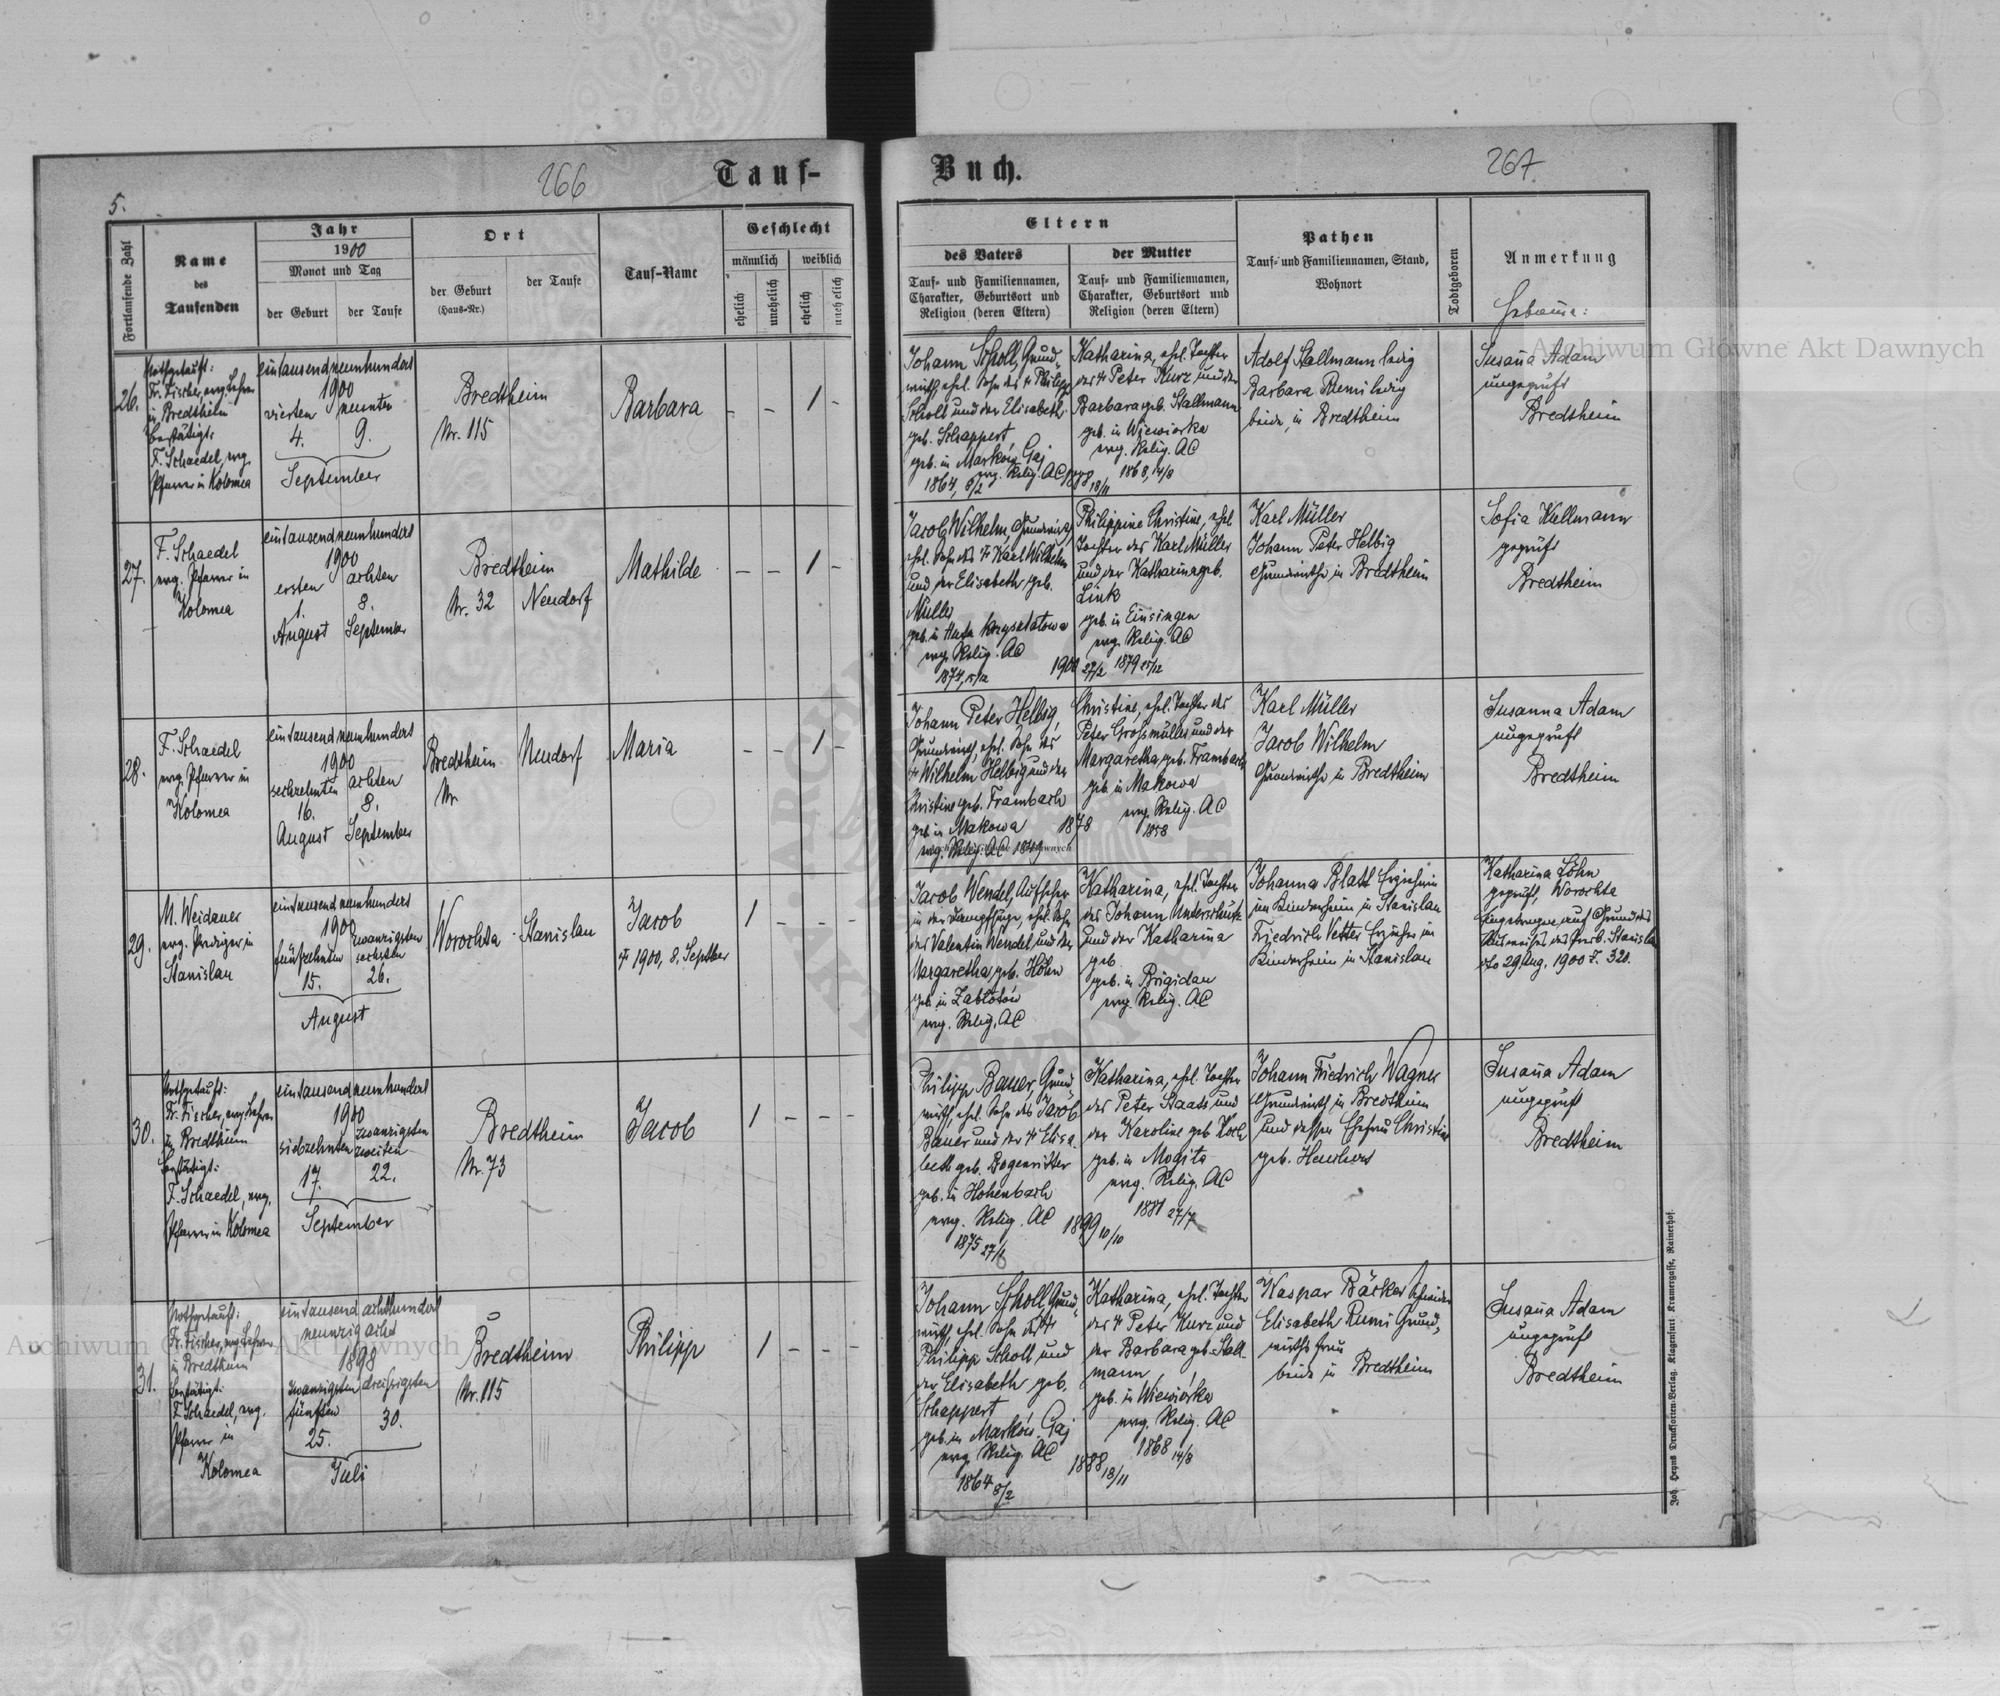 266
Tauf-
Buch.
267
5.
Fortlaufende Zahl
Name
des
Taufenden
Jahr
1900
Monat und Tag
der Geburt
der Taufe
Ort
der Geburt
(Haus-Nr.)
der Taufe
Tauf-Name
Geschlecht
männlich
weiblich
ehelich
unehelich
ehelich
unehelich
Eltern
des Vaters
Tauf- und Familiennamen,
Charakter, Geburtsort und
Religion (deren Eltern)
der Mutter
Tauf- und Familiennamen,
Charakter, Geburtsort und
Religion (deren Eltern)
Pathen
Tauf- und Familiennamen, Stand,
Wohnort
Todtgeboren
Anmerkung
Hebame:
26.
Nothgetauft:
Fr. Fischer, evg. Lehrer
in Bredtheim
bestätigt:
F. Schaedel, evg.
Pfarrer in Kolomea
eintausendneunhundert
1900
vierten neunten
4. 9.
September
Bredtheim
Nr. 115
Barbara
- - 1 -
Johann Scholl, Grund-
wirth, ehl. Sohn des † Philipp
Scholl und der Elisabeth
geb. Schappert,
geb. in Markow Gaj
evg. Relig. AC
1864, 8/2
1888 18/11
Katharina, ehl. Tochter
des † Peter Kurz und der
Barbara geb. Stallmann
geb. in Wiewiorka
evg. Relig. AC
1868, 14/8
Adolf Stallmann ledig
Barbara Rumi ledig
beide in Bredtheim
Susana Adam
ungeprüft
Bredtheim
27.
F. Schaedel
evg. Pfarrer in
Kolomea
eintausendneunhundert
1900
ersten achten
1. 8.
August September
Bredtheim
Nr. 32 Neudorf
Mathilde
- - 1 -
Jacob Wilhelm, Grundwirth,
ehl. Sohn des † Karl Wilhelm
und der Elisabeth geb.
Müller
evg. Relig. AC
1900 27/2
Philippine Christine, ehl.
Tochter des Karl Müller
und der Katharina geb.
Link
geb. in Einsingen
evg. Relig. AC
1879 25/12
Karl Müller
Johann Peter Helbig
Grundwirthe in Bredtheim
Sofia Kullmann
geprüft
Bredtheim
28.
F. Schaedel
evg. Pfarrer in
Kolomea
eintausendneunhundert
1900
sechzehnten achten
16. 8.
August September
Bredtheim Neudorf
Nr
Maria
- - 1 -
Johann Peter Helbig,
Grundwirth, ehl. Sohn des
† Wilhelm Helbig und der
Christine geb. Frambach
geb. in Makowa
evg. Relig. AC
1878
Christine, ehl. Tochter des
Peter Grossmüller und der
Margaretha geb. Frambach
geb. in Makowa
evg. Relig. AC
1858
Karl Müller
Jacob Wilhelm
Grundwirthe in Bredtheim
Susanna Adam
ungeprüft
Bredtheim
29.
M. Weidauer
evg. Prediger in
Stanislau
eintausendneunhundert
1900
fünfzehnten zwanzigsten
sechsten
15. 26.
August
Worochta Stanislau
Jacob
† 1900, 8. September
1 - - -
Jacob Wendel, Aufseher
in der Dampfsäge, ehl. Sohn
des Valentin Wendel und der
Margaretha geb. Höhn
geb. in Zabłotów
evg. Relig. AC
Katharina, ehl. Tochter
des Johann Unterschütz
und der Katharina
geb.
geb. in Brigidau
evg. Relig. AC
Johanna Blatt Erzieherin
im Kinderheim in Stanislau
Friedrich Vetter Erzieher im
Kinderheim in Stanislau
Katharina Löhn
geprüft, Worochta
Eingetragen auf Grund des
Ausweises des Presb. Stanislau
dto 29 Aug. 1900 Z. 320.
30.
Nothgetauft:
Fr. Fischer, evg. Lehrer
in Bredtheim
bestätigt:
F. Schaedel, evg.
Pfarrer in Kolomea
eintausendneunhundert
1900
siebzehnten zwanzigsten
zweiten
17. 22.
September
Bredtheim
Nr. 73
Jacob
1 - - -
Philipp Bauer, Grund-
wirth, ehl. Sohn des Jacob
Bauer und der † Elisa-
beth geb. Bogenritter
geb. in Hohenbach
evg. Relig. AC
1899 10/10
Katharina, ehl. Tochter
des Peter Staats und
der Karoline geb. Koch
geb. in Mogila
evg. Relig. AC
1881 27/7
Johann Friedrich Wagner
Grundwirth in Bredtheim
und dessen Ehefrau Christine
Susana Adam
ungeprüft
Bredtheim
31.
Nothgetauft:
Fr. Fischer, evg. Lehrer
in Bredtheim
bestätigt:
F. Schaedel, evg.
Pfarrer in
Kolomea
eintausend achthundert
neunzig acht
1898
zwanzigsten dreißigsten
fünften
25. 30.
Juli
Bredtheim
Nr. 115
Philipp
1 - - -
Johann Scholl, Grund-
wirth, ehl. Sohn des †
Philipp Scholl und
der Elisabeth geb.
Schappert
geb. in Markow Gaj
evg. Relig. AC
1864 8/2
1888 18/11
Katharina, ehl. Tochter
des † Peter Kurz und
der Barbara geb. Stall-
mann
geb. in Wiewiórka
evg. Relig. AC
1868 14/8
Kaspar Bäcker Schneider
Elisabeth Rumi Grund-
wirths frau
beide in Bredtheim
Susana Adam
ungeprüft
Bredtheim
Joh. Heyns Drucksorten-Verlag. Klagenfurt Kramergasse, Rainerhof.
Archiwum Główne Akt Dawnych
Archiwum Główne Akt Dawnych